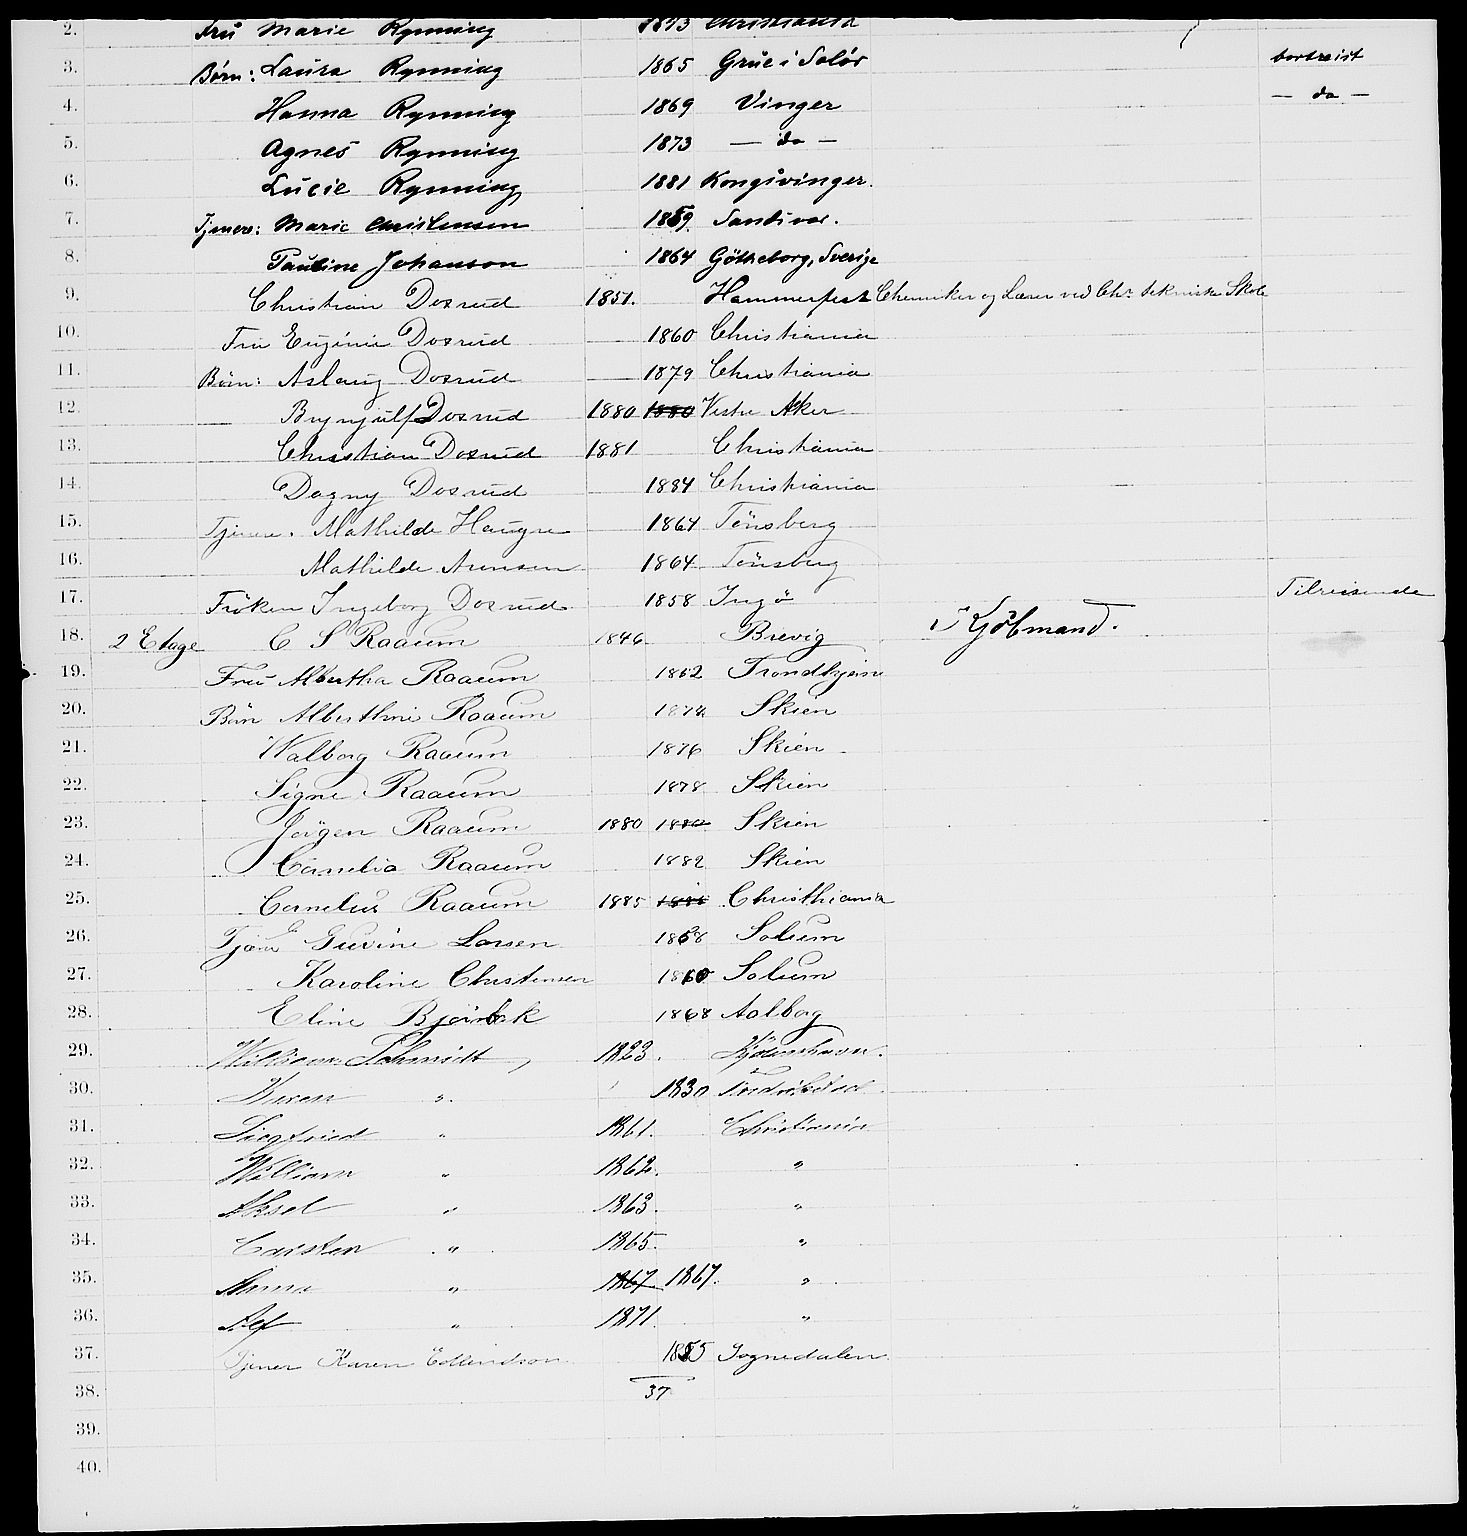 2. Fru Marie Rynning 1843 Christiania
3. Børn: Laura Rynning 1865 Grue i Solör bortreist
4. Hanna Rynning 1869 Vinger — do —
5. Agnes Rynning 1873 — do —
6. Lucie Rynning 1881 Kongsvinger.
7. Tjenere: Marie Christensen 1859. 
8. Pauline Johanson 1864 Götheborg, Sverige
9. Christian Dosrud 1851. Hammerfest Chemiker og Lærer ved Chr. tekniske Skole
10. Fru Eugénie Dosrud 1860 Christiania
11. Børn: Aslaug Dosrud 1879 Christiania
12. Brynjulf Dosrud 1880 1880 Vestre Aker
13. Christian Dosrud 1881 Christiania
14. Dagny Dosrud 1884 Christiania
15. Tjenere. Mathilde 1864 Tönsberg
16. Mathilde Arensen 1864 Tönsberg
17. Fröken Ingeborg Dosrud. 1858 Ingö Tilreisende
18. 2 Etage C S Raaum 1846 Brevig Kjöbmand.
19. Fru Albertha Raaum 1852 Trondhjem
20. Børn Alberthine Raaum 1874 Skien
21. Walborg Raaum 1876 Skien
22. Signe Raaum 1878 Skien
23. Jörgen Raaum 1880 1880 Skien
24. Cornelia Raaum 1882 Skien
25. Cornelius Raaum 1885 1885 Christhiania
26. Tjener Gurine Larsen 1858 Solum
27. Karoline Christensen 1860 Solum
28. Eline 1868 Aalborg
29. William Schmidt, 1823. Kjøbenhavn.
30. " 1830 Fredrikstad
31. Siegfried " 1861. Christiania
32. William " 1862. "
33. Aksel " 1863. "
34. Carsten " 1865. "
35. Anna " 1867 1867. "
36. Alf " 1871. "
37. Tjener Karen 1855 Sognedalen
38. 37
39.
40.